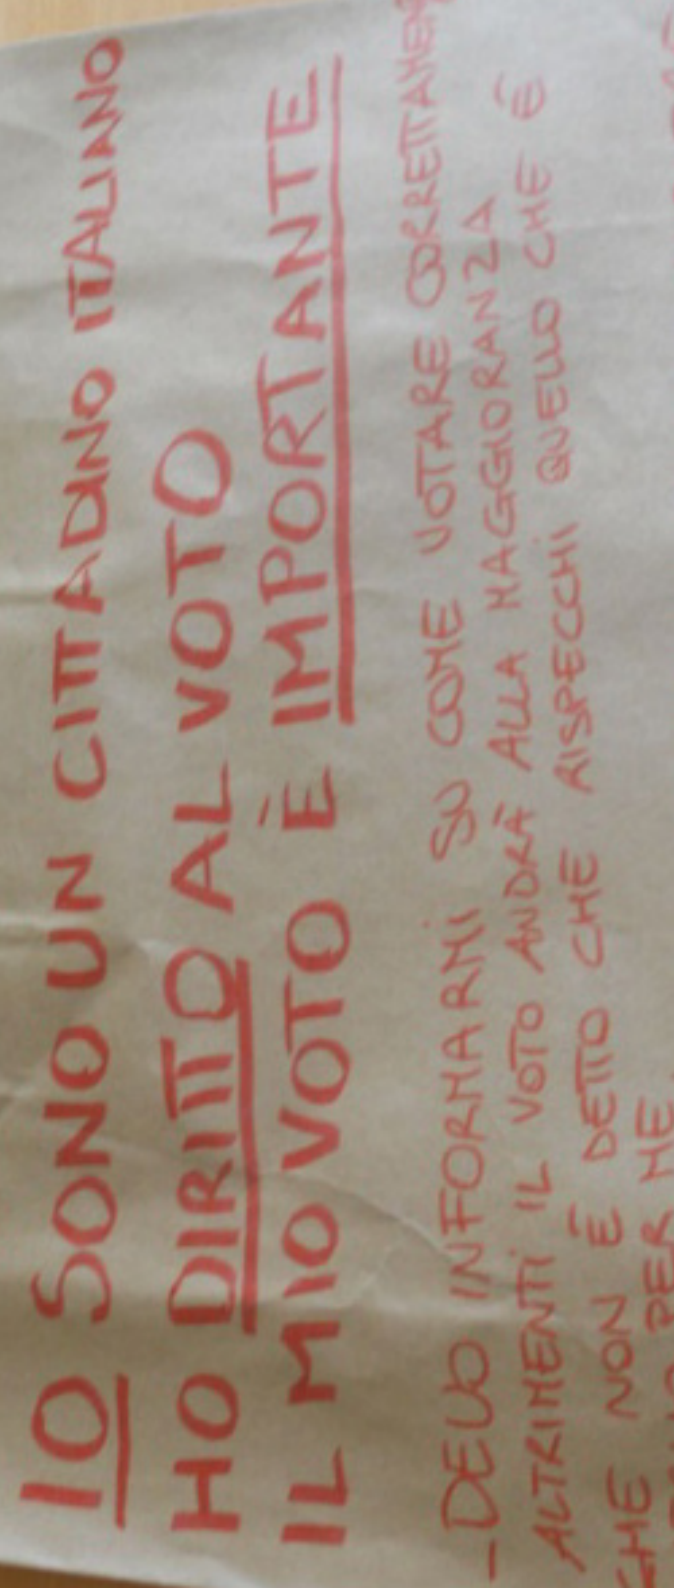 IO SONO UN CITTADINO ITALIANO
HO DIRITTO AL VOTO
IL MIO VOTO È IMPORTANTE
- DEVO INFORMARMI SU COME VOTARE
ALTRIMENTI IL VOTO ANDRÀ ALLA MAGGIORANZA
CHE NON È DETTO CHE RISPECCHI QUELLO CHE È
PER ME.